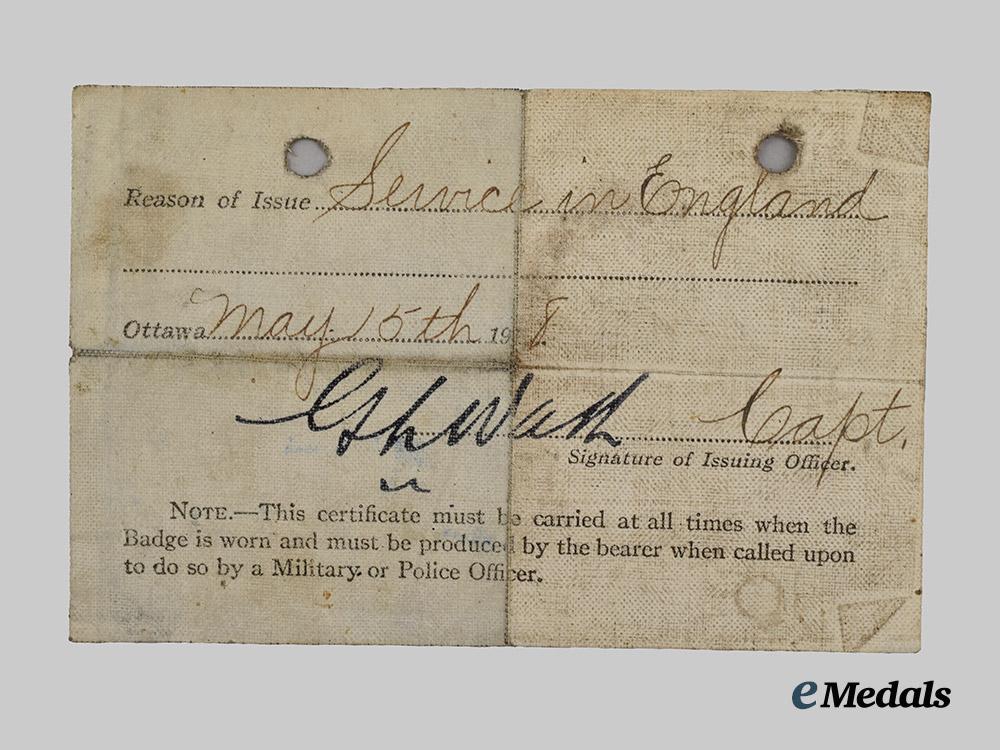 Reason of Issue Service in England
Ottawa May 15th 19 8.
Capt.
Signature of Issuing Officer.
NOTE.—This certificate must be carried at all times when the
Badge is worn and must be produced by the bearer when called upon
to do so by a Military or Police Officer.
eMedals